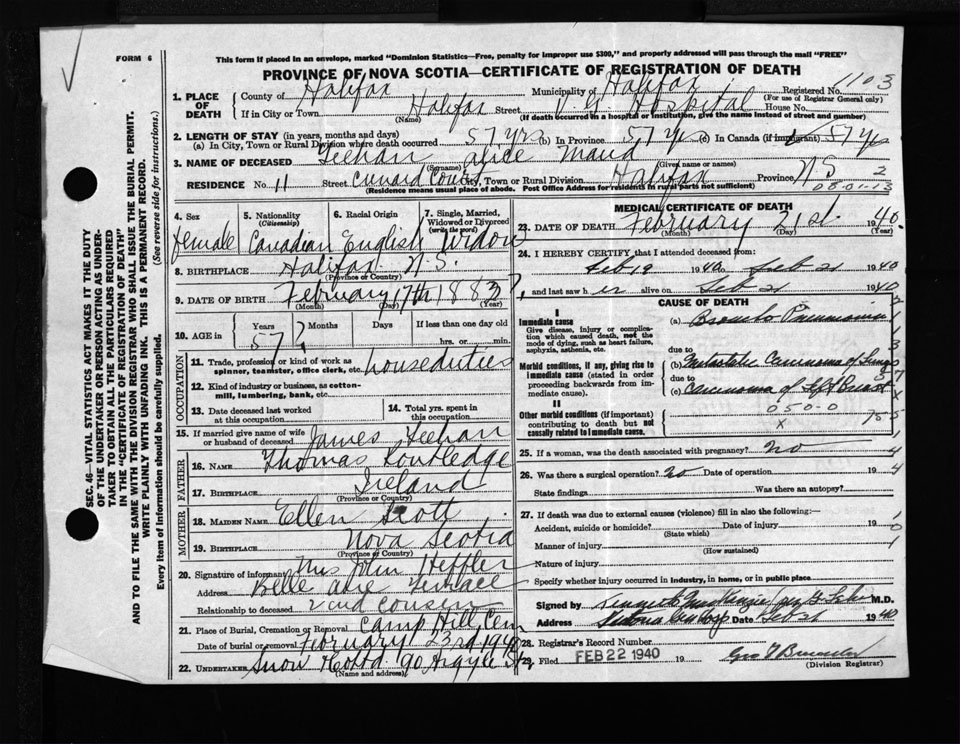 FORM 6
This form if placed in an envelope, marked "Dominion Statistics—Free, penalty for improper use $300," and properly addressed will pass through the mail "FREE"
PROVINCE OF NOVA SCOTIA—CERTIFICATE OF REGISTRATION OF DEATH
Registered No. 1103
(For use of Registrar General only)
1. PLACE OF DEATH
County of Halifax Municipality of Halifax
If in City or Town Halifax Street V.G. Hospital House No.
(Name) (If death occurred in a hospital or institution, give the name instead of street and number)
2. LENGTH OF STAY (in years, months and days)
(a) In City, Town or Rural Division where death occurred 57 yrs (b) In Province 57 yrs (c) In Canada (if immigrant) 57 yrs
3. NAME OF DECEASED Feehan Alice Maud
(Surname) (Given name or names)
RESIDENCE No. 11 Street Cunard Court City, Town or Rural Division Halifax Province N S 2
(Residence means usual place of abode. Post Office Address for residents in rural parts not sufficient) 08-01-13
4. Sex female
5. Nationality (Citizenship) Canadian
6. Racial Origin English
7. Single, Married, Widowed or Divorced (write the word) Widow
8. BIRTHPLACE Halifax N.S.
(Province or Country)
9. DATE OF BIRTH February 17th 1883
(Month) (Day) (Year)
10. AGE in Years Months Days If less than one day old
57 hrs. or min.
OCCUPATION
11. Trade, profession or kind of work as spinner, teamster, office clerk, etc. houseduties
12. Kind of industry or business, as cotton-mill, lumbering, bank, etc.
13. Date deceased last worked at this occupation
14. Total yrs. spent in this occupation
15. If married give name of wife or husband of deceased James Feehan
FATHER
16. NAME Thomas Routledge
17. BIRTHPLACE Ireland
(Province or Country)
MOTHER
18. MAIDEN NAME Ellen Scott
19. BIRTHPLACE Nova Scotia
(Province or Country)
20. Signature of informant Mrs John Heffler
Address Belle Aire Terrace
Relationship to deceased 2nd cousin
21. Place of Burial, Cremation or Removal Camp Hill Cem
Date of burial or removal February 23rd 1940
22. UNDERTAKER Snow & Co Ltd 90 Argyle St
(Name and address)
MEDICAL CERTIFICATE OF DEATH
23. DATE OF DEATH February 21st 1940
(Month) (Day) (Year)
24. I HEREBY CERTIFY that I attended deceased from:
Feb 19 1940 to Feb 21 1940
and last saw her alive on Feb 21 1940
CAUSE OF DEATH
I
Immediate cause
Give disease, injury or complication which caused death, not the mode of dying, such as heart failure, asphyxia, asthenia, etc.
(a) Broncho Pneumonia
due to
Morbid conditions, if any, giving rise to immediate cause (stated in order proceeding backwards from immediate cause).
(b) Metastatic Carcinoma of Lungs
due to
(c) Carcinoma of Left Breast
II
050-0
Other morbid conditions (if important) contributing to death but not causally related to immediate cause.
x
25. If a woman, was the death associated with pregnancy? No
26. Was there a surgical operation? No Date of operation 194
State findings Was there an autopsy?
27. If death was due to external causes (violence) fill in also the following:—
Accident, suicide or homicide? Date of injury 19
(State which)
Manner of injury
(How sustained)
Nature of injury
Specify whether injury occurred in industry, in home, or in public place
Signed by Kenneth MacKenzie M.D.
Address Victoria Gen Hosp Date Feb 21 1940
28. Registrar's Record Number
29. Filed FEB 22 1940 19
(Division Registrar)
SEC. 46—VITAL STATISTICS ACT MAKES IT THE DUTY
OF THE UNDERTAKER OR PERSON ACTING AS UNDER-
TAKER TO OBTAIN ALL THE PARTICULARS REQUIRED
IN THE "CERTIFICATE OF REGISTRATION OF DEATH"
AND TO FILE THE SAME WITH THE DIVISION REGISTRAR WHO SHALL ISSUE THE BURIAL PERMIT.
WRITE PLAINLY WITH UNFADING INK. THIS IS A PERMANENT RECORD.
Every item of Information should be carefully supplied. (See reverse side for instructions.)